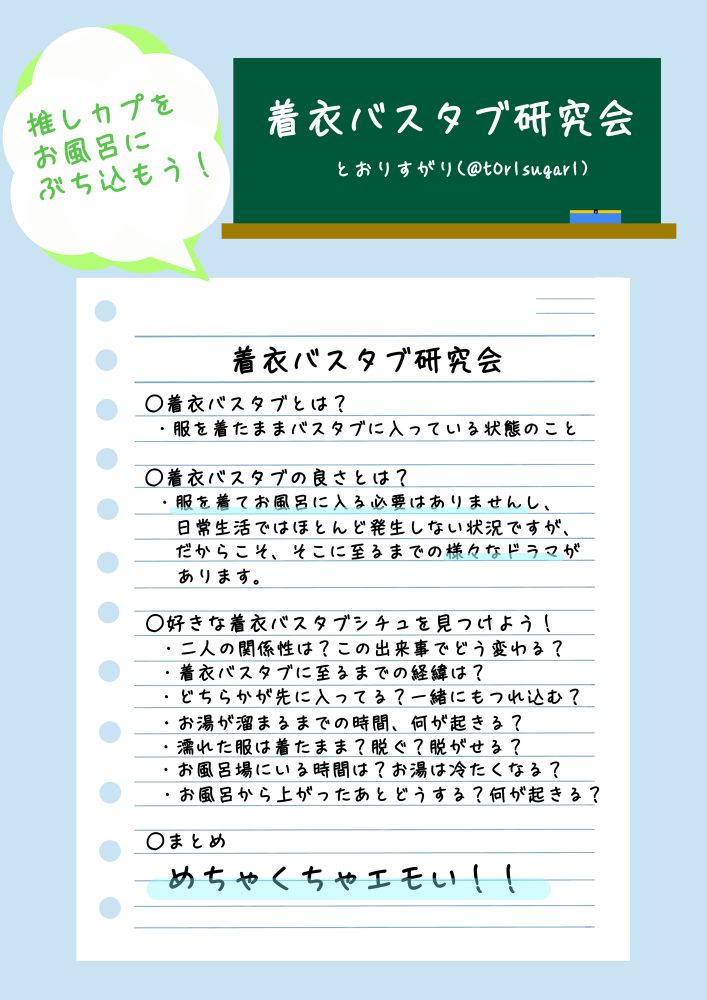 推しカプを
お風呂に
ぶち込もう！
着衣バスタブ研究会
とおりすがり(@t0r1sugar1)
着衣バスタブ研究会
〇着衣バスタブとは？
・服を着たままバスタブに入っている状態のこと
〇着衣バスタブの良さとは？
・服を着てお風呂に入る必要はありませんし、
日常生活ではほとんど発生しない状況ですが、
だからこそ、そこに至るまでの様々なドラマが
あります。
〇好きな着衣バスタブシチュを見つけよう！
・二人の関係性は？この出来事でどう変わる？
・着衣バスタブに至るまでの経緯は？
・どちらかが先に入ってる？一緒にもつれ込む？
・お湯が溜まるまでの時間、何が起きる？
・濡れた服は着たまま？脱ぐ？脱がせる？
・お風呂場にいる時間は？お湯は冷たくなる？
・お風呂から上がったあとどうする？何が起きる？
〇まとめ
めちゃくちゃエモい！！